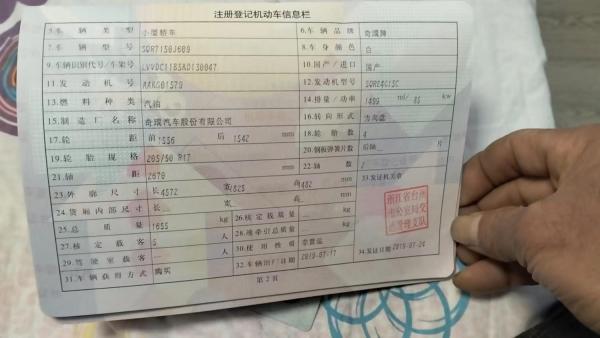 注册登记机动车信息栏
5.车辆类型 小型轿车 6.车辆品牌 奇瑞牌
7.车辆型号 SQR7150J609 8.车身颜色 白
9.车辆识别代号/车架号 10.国产/进口 国产
11.发动机号 12.发动机型号 SQRE4G15C
13.燃料种类 汽油 14.排量/功率 1499 ml/ 85 kw
15.制造厂名称 奇瑞汽车股份有限公司 16.转向形式 方向盘
17.轮距 前 1556 后 1542 mm 18.轮胎数 4
19.轮胎规格 205/50 R17 20.钢板弹簧片数 后轴 片
21.轴距 2670 mm 22.轴数 2
23.外廓尺寸 长 4572 宽 1825 高 1482 mm 33.发证机关章
24.货厢内部尺寸 长 宽 高 mm
25.总质量 1655 kg 26.核定载质量 kg
27.核定载客 5 人 28.准牵引总质量 kg
29.驾驶室载客 人 30.使用性质 非营运
31.车辆获得方式 购买 32.车辆出厂日期 2019-07-17 34.发证日期 2019-07-24
第2页
浙江省台州
市公安局交